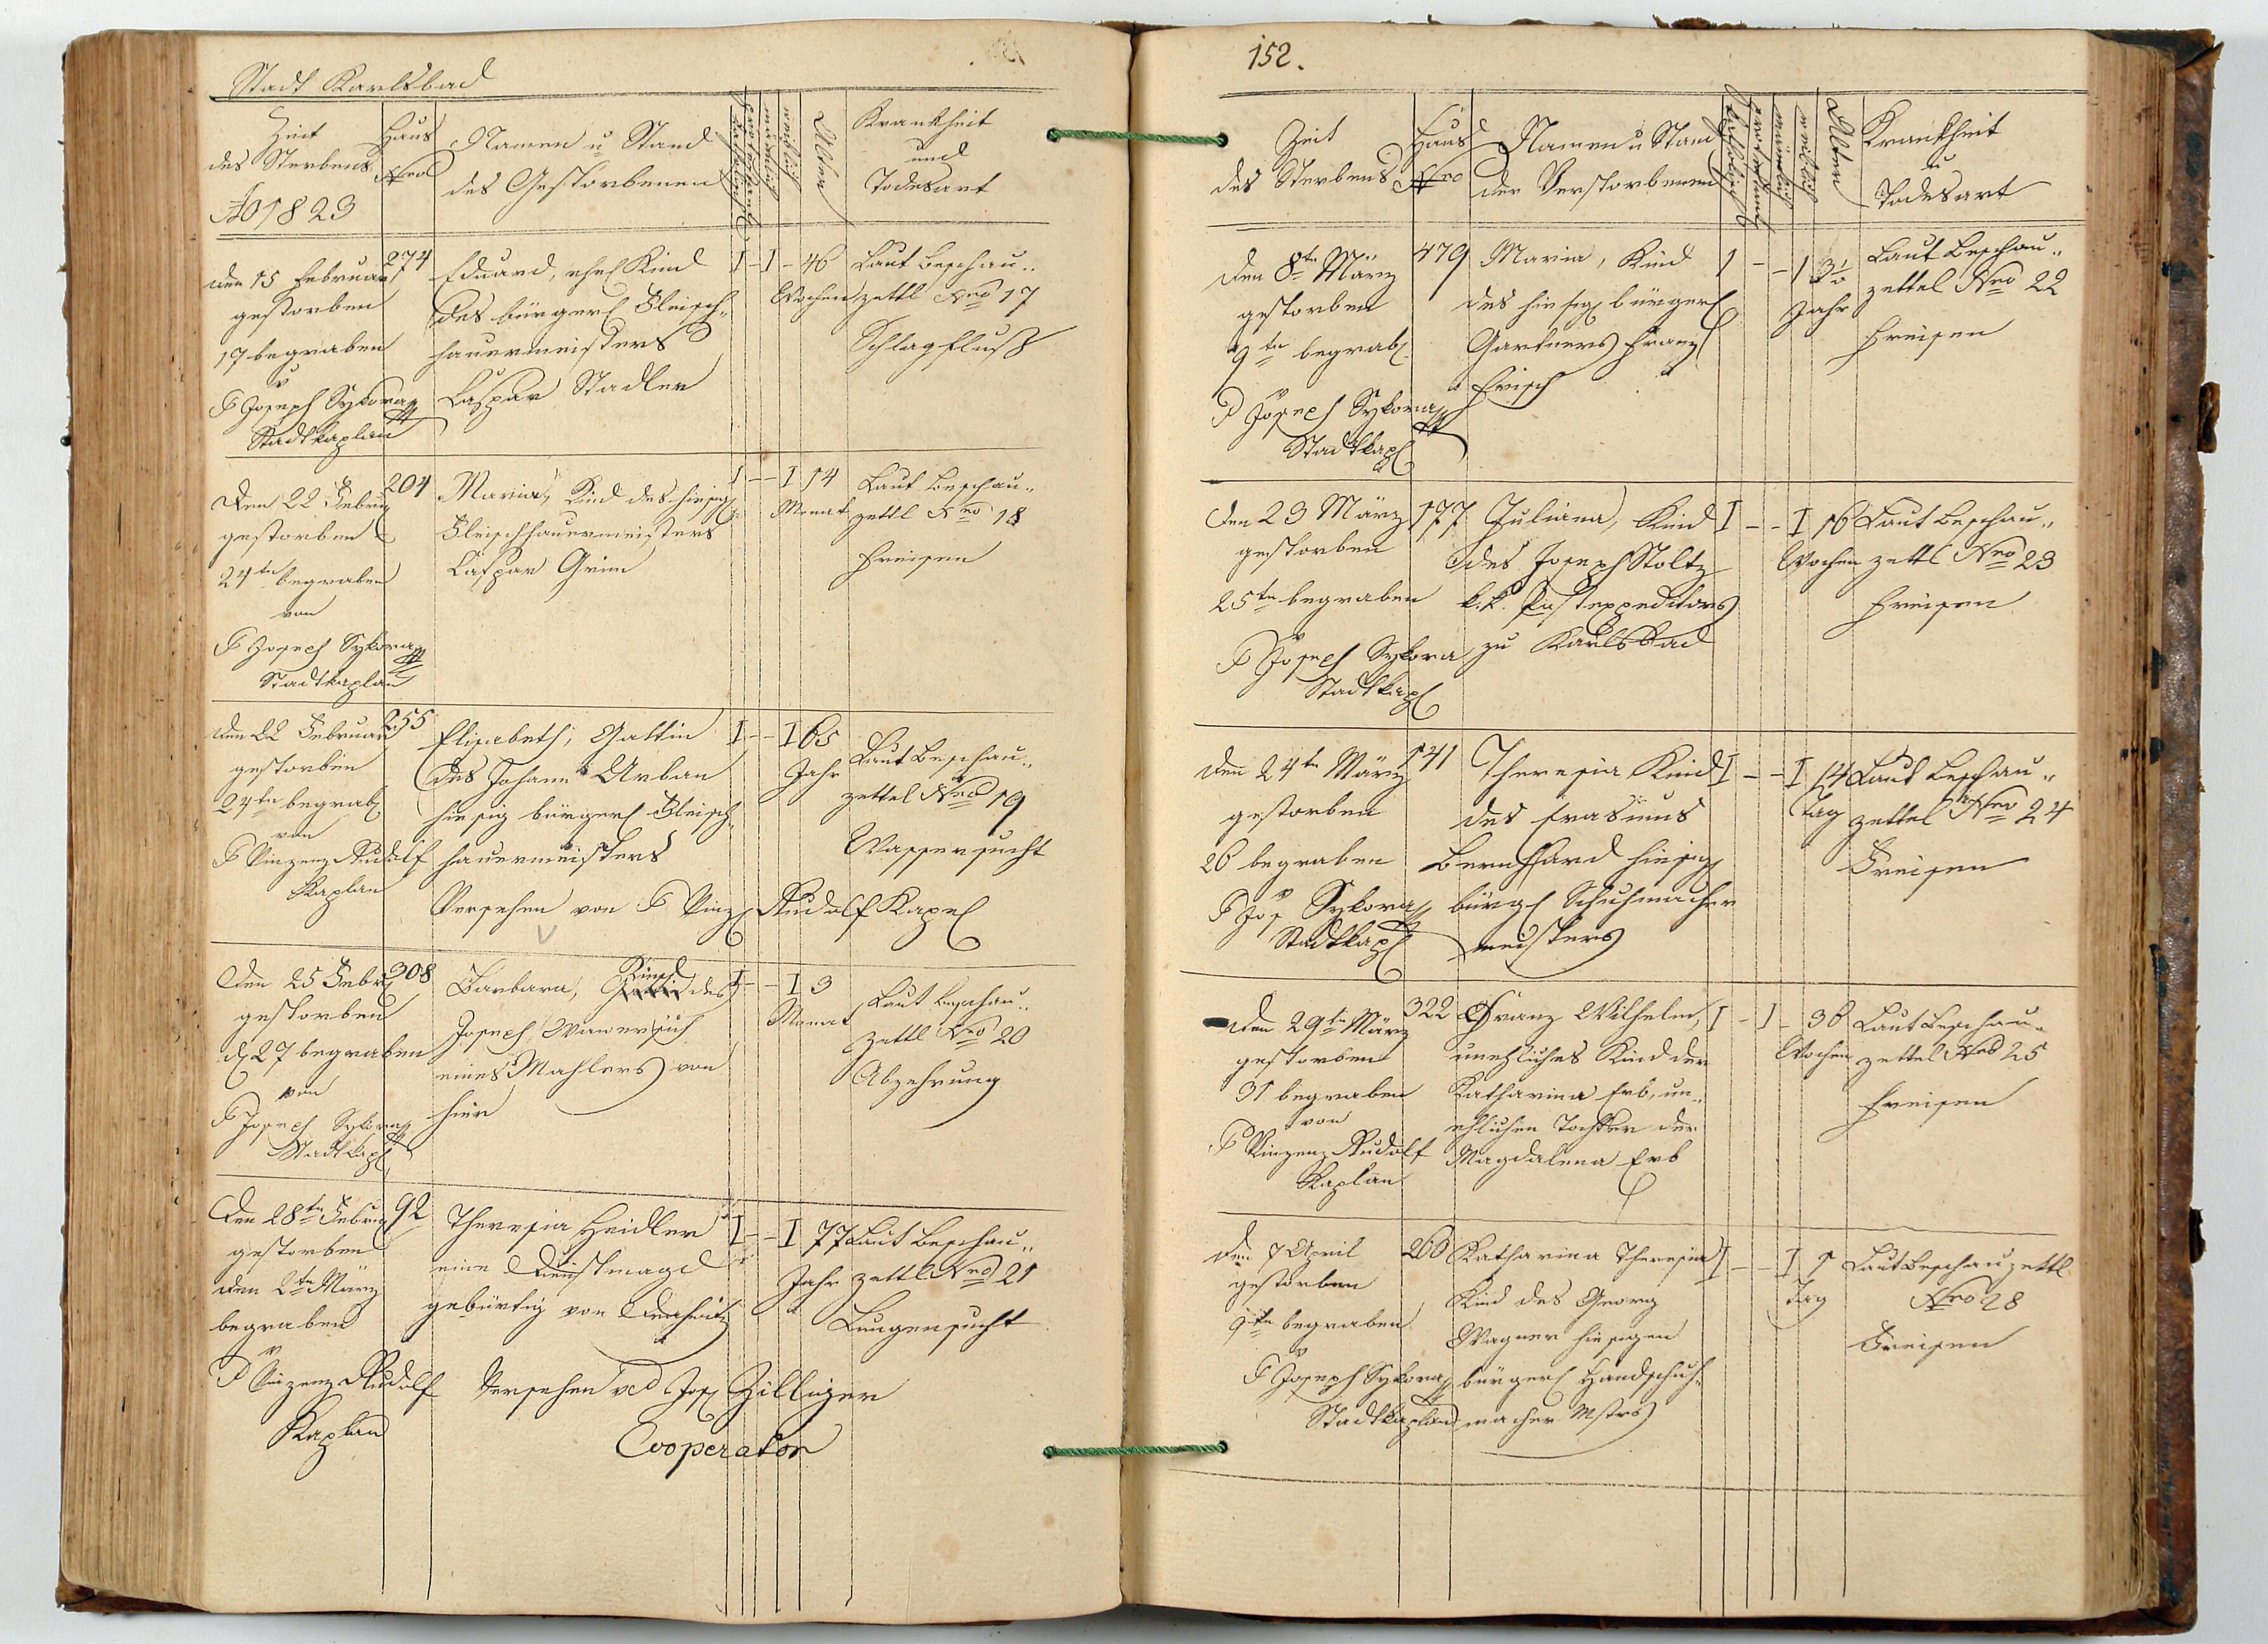 Stadt Karlsbad
Zeit
des Sterbens
Ao 1823
Haus
Nro
Namen u Stand
des Gestorbenen
Katholisch
Protestant
männlich
weiblich
Alter
Krankheit
und
Todesart
den 15 Februar
gestorben
17 begraben
v
P Joseph Sykora
Stadtkaplan
274
Eduard, ehel Kind
des bürgerl Fleisch-
hauermeisters
Caspar Stadler
I - I - 46
Wochen
Laut Beschau-
zettl Nro 17
Schlagfluß
Den 22 Febru
gestorben
24tn begraben
von
P Joseph Sykora
Stadtkaplan
204
Maria, Kind des hiesig
Fleischhauermeisters
Caspar Grim
I - - I 14
Monat
Laut Beschau-
zettl Nro 18
Freisen
den 22 Februar
gestorben
24tn begrab
von
P Vinzenz Rudolf
Kaplan
255
Elisabeth, Gattin
des Johann Urban
hiesig bürgerl Fleisch-
hauermeisters
Versehen von P Vinz Rudolf Kapl
I - - I 65
Jahr
Laut Beschau-
zettel Nro 19
Wassersucht
Den 25 Febr
gestorben
d 27 begraben
von
P Joseph Sykora
Stadtkapl
308
Kind
Barbara, Gattin des
Joseph
eines Mahlers von
hier
I - - I 3
Monat
Laut Beschau-
zettl Nro 20
Abzehrung
Den 28tn Febru
gestorben
den 2tn März
begraben
v
P Vinzenz Rudolf
Kaplan
92
Theresia Heidler
eine Dienstmagd
gebürtig von
Versehen Jos Zillinger
Cooperator
I - - I 77
Jahr
Laut Beschau-
zettl Nro 21
Lungensucht
152.
Zeit
des Sterbens
Haus
Nro
Namen u Stand
der Verstorbenen
Katholisch
Protestant
männlich
weiblich
Alter
Krankheit
u
Todesart
den 8tn März
gestorben
9tn begrab
v
P Joseph Sykora
Stadtkapl
479
Maria, Kind
des hiesig bürgerl
Gartners Franz
Frisch
1 - - 1 3½
Jahr
Laut Beschau-
zettel Nro 22
Freisen
Den 23 März
gestorben
25tn begraben
v
P Joseph Sykora
Stadtkapl
177
Juliana, Kind
des Joseph Stoltz
k. k. Postexpeditors
zu Karlsbad
I - - I 16
Wochen
Laut Beschau-
zettl Nro 23
Freisen
den 24tn März
gestorben
26 begraben
v
P Jos Sykora
Stadtkapl
141
Theresia Kind
des Erasmus
Bernhard hiesig
bürgl Schuhmacher
meisters
I - - I 14
Tag
Laut Beschau-
zettel Nro 24
Freisen
den 29tn März
gestorben
31 begraben
von
P Vinzenz Rudolf
Kaplan
322
Franz Wilhelm,
unehliches Kind der
Katharina Erb, un-
ehlichen Tochter der
Magdalena Erb
I - I - 36
Wochen
Laut Beschau-
zettel Nro 25
Freisen
Den 7 April
gestorben
9tn begraben
v
P Joseph Sykora
Stadtkaplan
266
Katharina Theresia
Kind des Georg
Wagner hiesigen
bürgerl Handschuh-
macher Mstrs
I - - I 1
Tag
Laut Beschauzettl
Nro 28
Freisen